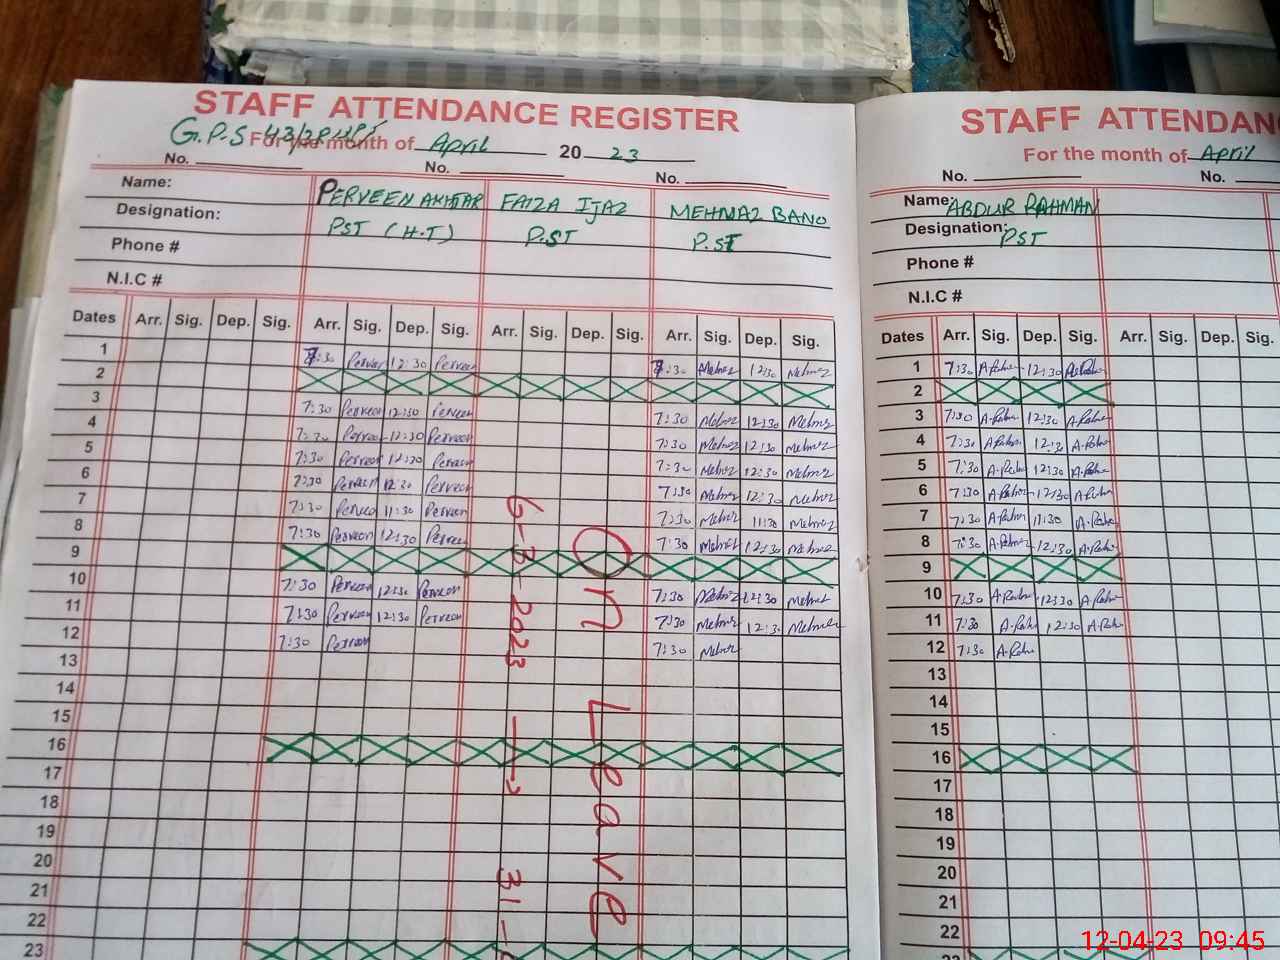 STAFF ATTENDANCE REGISTER
G.P.S 43/
For the month of April 2023
No. No. No.
Name: PERVEEN AKHTAR FAIZA IJAZ MEHNAZ BANO
Designation: PST (H.T) P.ST P.ST
Phone #
N.I.C #
Dates Arr. Sig. Dep. Sig. Arr. Sig. Dep. Sig. Arr. Sig. Dep. Sig. Arr. Sig. Dep. Sig.
1 7:30 Perveen 12:30 Perveen 7:30 Mehnaz 12:30 Mehnaz
2
3 7:30 Perveen 12:30 Perveen 7:30 Mehnaz 12:30 Mehnaz
4 7:30 Perveen 12:30 Perveen 7:30 Mehnaz 12:30 Mehnaz
5 7:30 Perveen 12:30 Perveen 7:30 Mehnaz 12:30 Mehnaz
6 7:30 Perveen 12:30 Perveen 7:30 Mehnaz 12:30 Mehnaz
7 7:30 Perveen 11:30 Perveen 7:30 Mehnaz 11:30 Mehnaz
8 7:30 Perveen 12:30 Perveen 7:30 Mehnaz 12:30 Mehnaz
9
10 7:30 Perveen 12:30 Perveen 7:30 Mehnaz 12:30 Mehnaz
11 7:30 Perveen 12:30 Perveen 7:30 Mehnaz 12:30 Mehnaz
12 7:30 Perveen 7:30 Mehnaz
13
14
15
16
17
18
19
20
21
22
23
On Leave
6-3-2023 → 31-
STAFF ATTENDAN
For the month of April
No. No.
Name: ABDUR RAHMAN
Designation: PST
Phone #
N.I.C #
Dates Arr. Sig. Dep. Sig. Arr. Sig. Dep. Sig.
1 7:30 A.Rahm 12:30 A.Rahm
2
3 7:30 A.Rahm 12:30 A.Rahm
4 7:30 A.Rahm 12:30 A.Rahm
5 7:30 A.Rahm 12:30 A.Rahm
6 7:30 A.Rahm 12:30 A.Rahm
7 7:30 A.Rahm 11:30 A.Rahm
8 7:30 A.Rahm 12:30 A.Rahm
9
10 7:30 A.Rahm 12:30 A.Rahm
11 7:30 A.Rahm 12:30 A.Rahm
12 7:30 A.Rahm
13
14
15
16
17
18
19
20
21
22
23
12-04-23 09:45